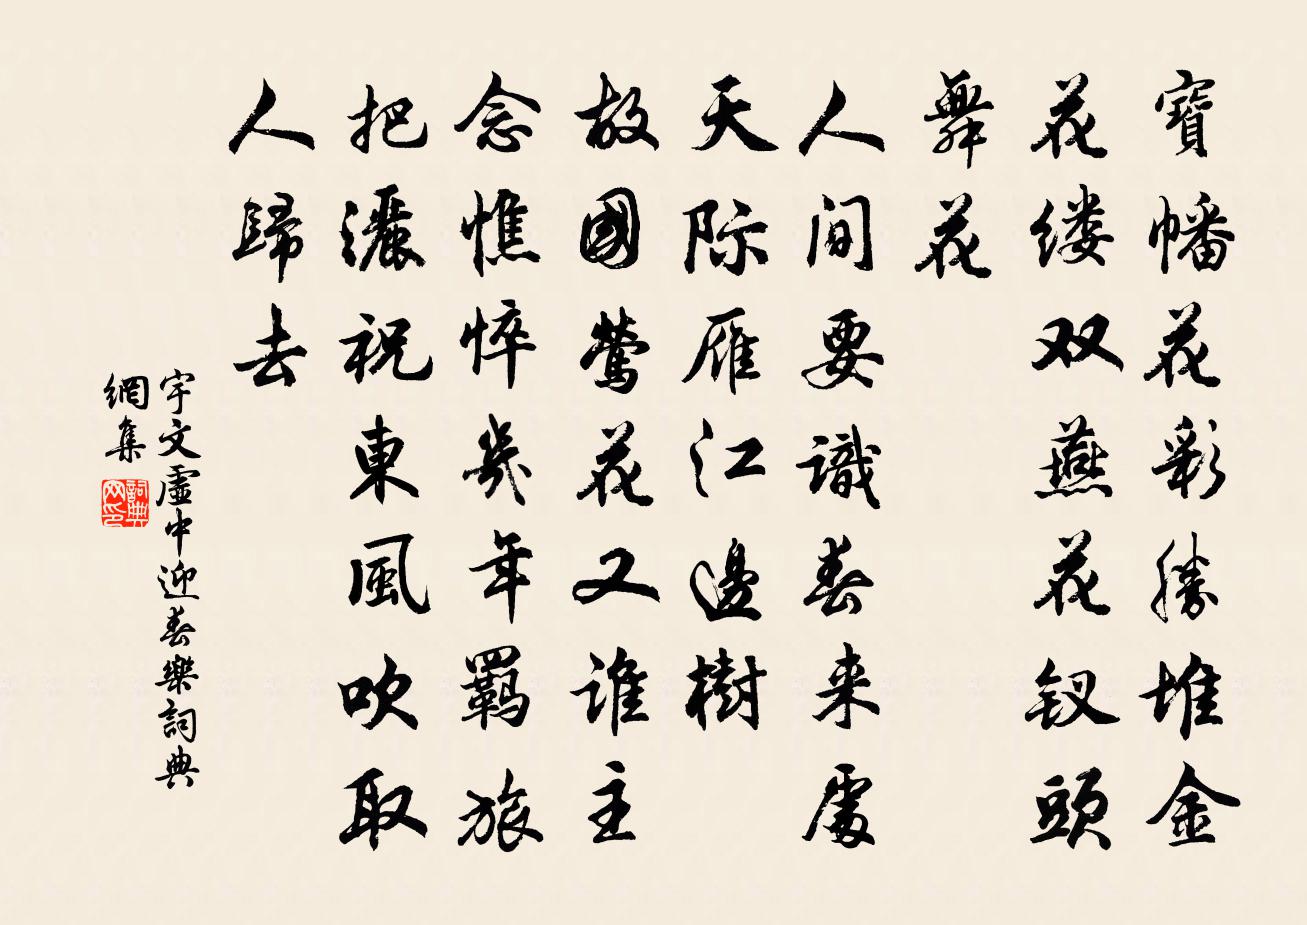 寶幡花彩勝堆金
花缕双燕花钗頭
舞花
人间要識春来處
天际雁江邊樹
故國鶯花又谁主
念憔悴幾年羈旅
把灑祝東風吹取
人歸去
宇文虛中迎春樂詞典
網集
詞典网印